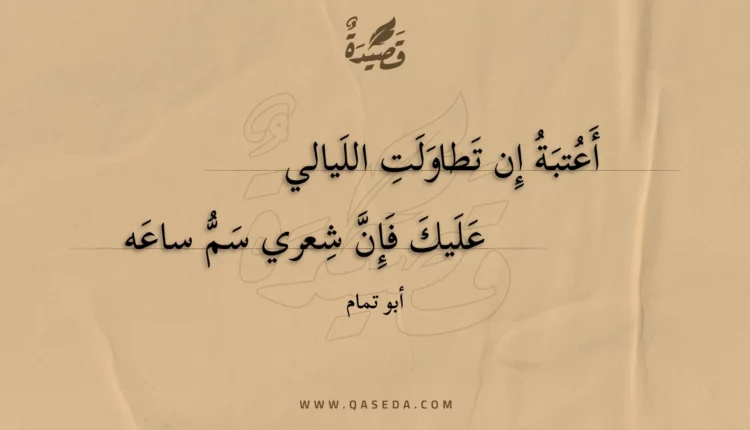 قَصِيْدَةٌ
أَعُتبَةُ إِن تَطاوَلَتِ اللَيالي
عَلَيكَ فَإِنَّ شِعري سَمُّ ساعَه
أبو تمام
WWW.QASEDA.COM